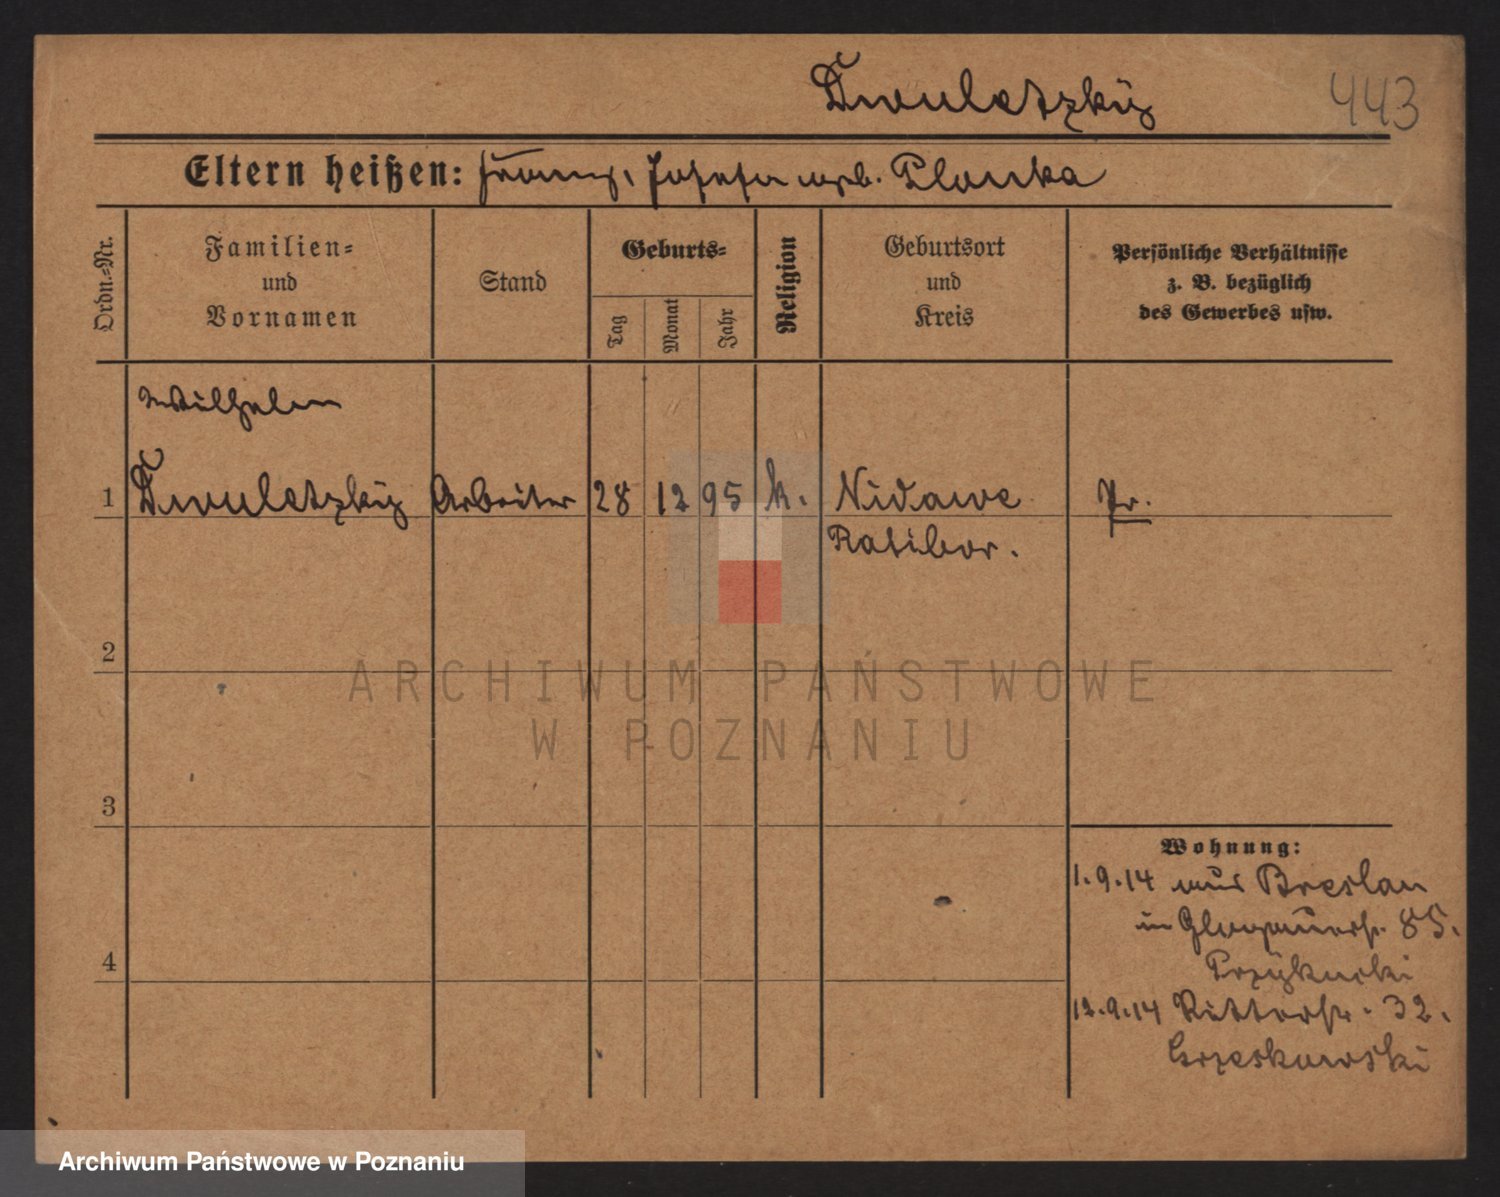 Dwuletzky
443
Eltern heißen: Franz, Josefa geb. Plonka
Ordn.-Nr.
Familien-
und
Vornamen
Stand
Geburts-
Tag
Monat
Jahr
Religion
Geburtsort
und
Kreis
Persönliche Verhältnisse
z. B. bezüglich
des Gewerbes usw.
Wilhelm
1 Dwuletzky Arbeiter 28 12 95 k. Nidawe Pr.
Ratibor.
2
3
4
Wohnung:
1.9.14 aus Breslau
in Glogauerstr. 85.
12.9.14 Ritterstr. 32.
ARCHIWUM PAŃSTWOWE
W POZNANIU
Archiwum Państwowe w Poznaniu